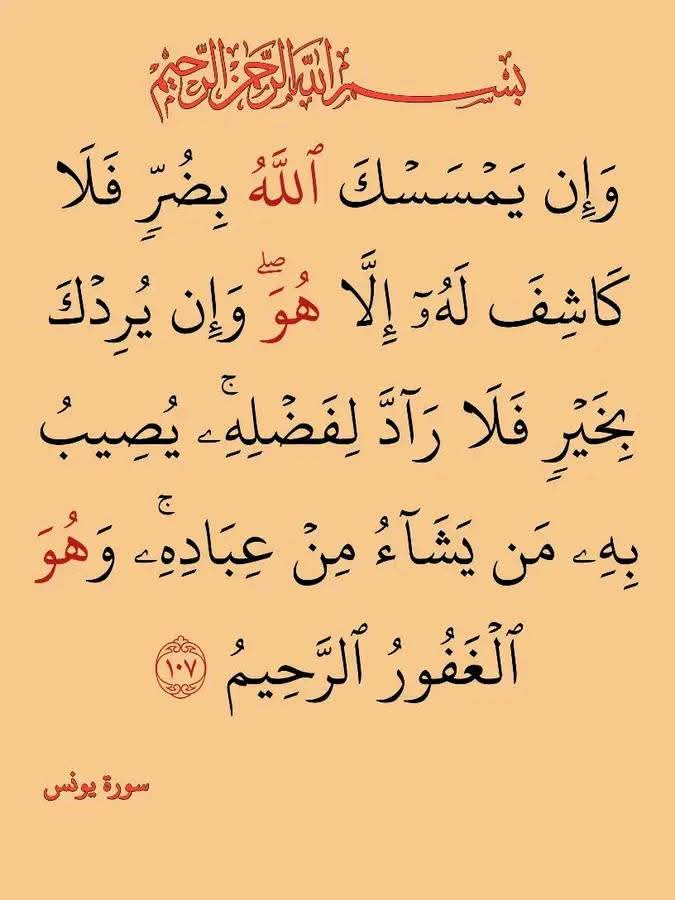 بسم الله الرحمن الرحيم
وَإِن يَمْسَسْكَ ٱللَّهُ بِضُرٍّ فَلَا
كَاشِفَ لَهُۥٓ إِلَّا هُوَ ۖ وَإِن يُرِدْكَ
بِخَيْرٍ فَلَا رَآدَّ لِفَضْلِهِۦ ۚ يُصِيبُ
بِهِۦ مَن يَشَآءُ مِنْ عِبَادِهِۦ ۚ وَهُوَ
ٱلْغَفُورُ ٱلرَّحِيمُ ١٠٧
سورة يونس